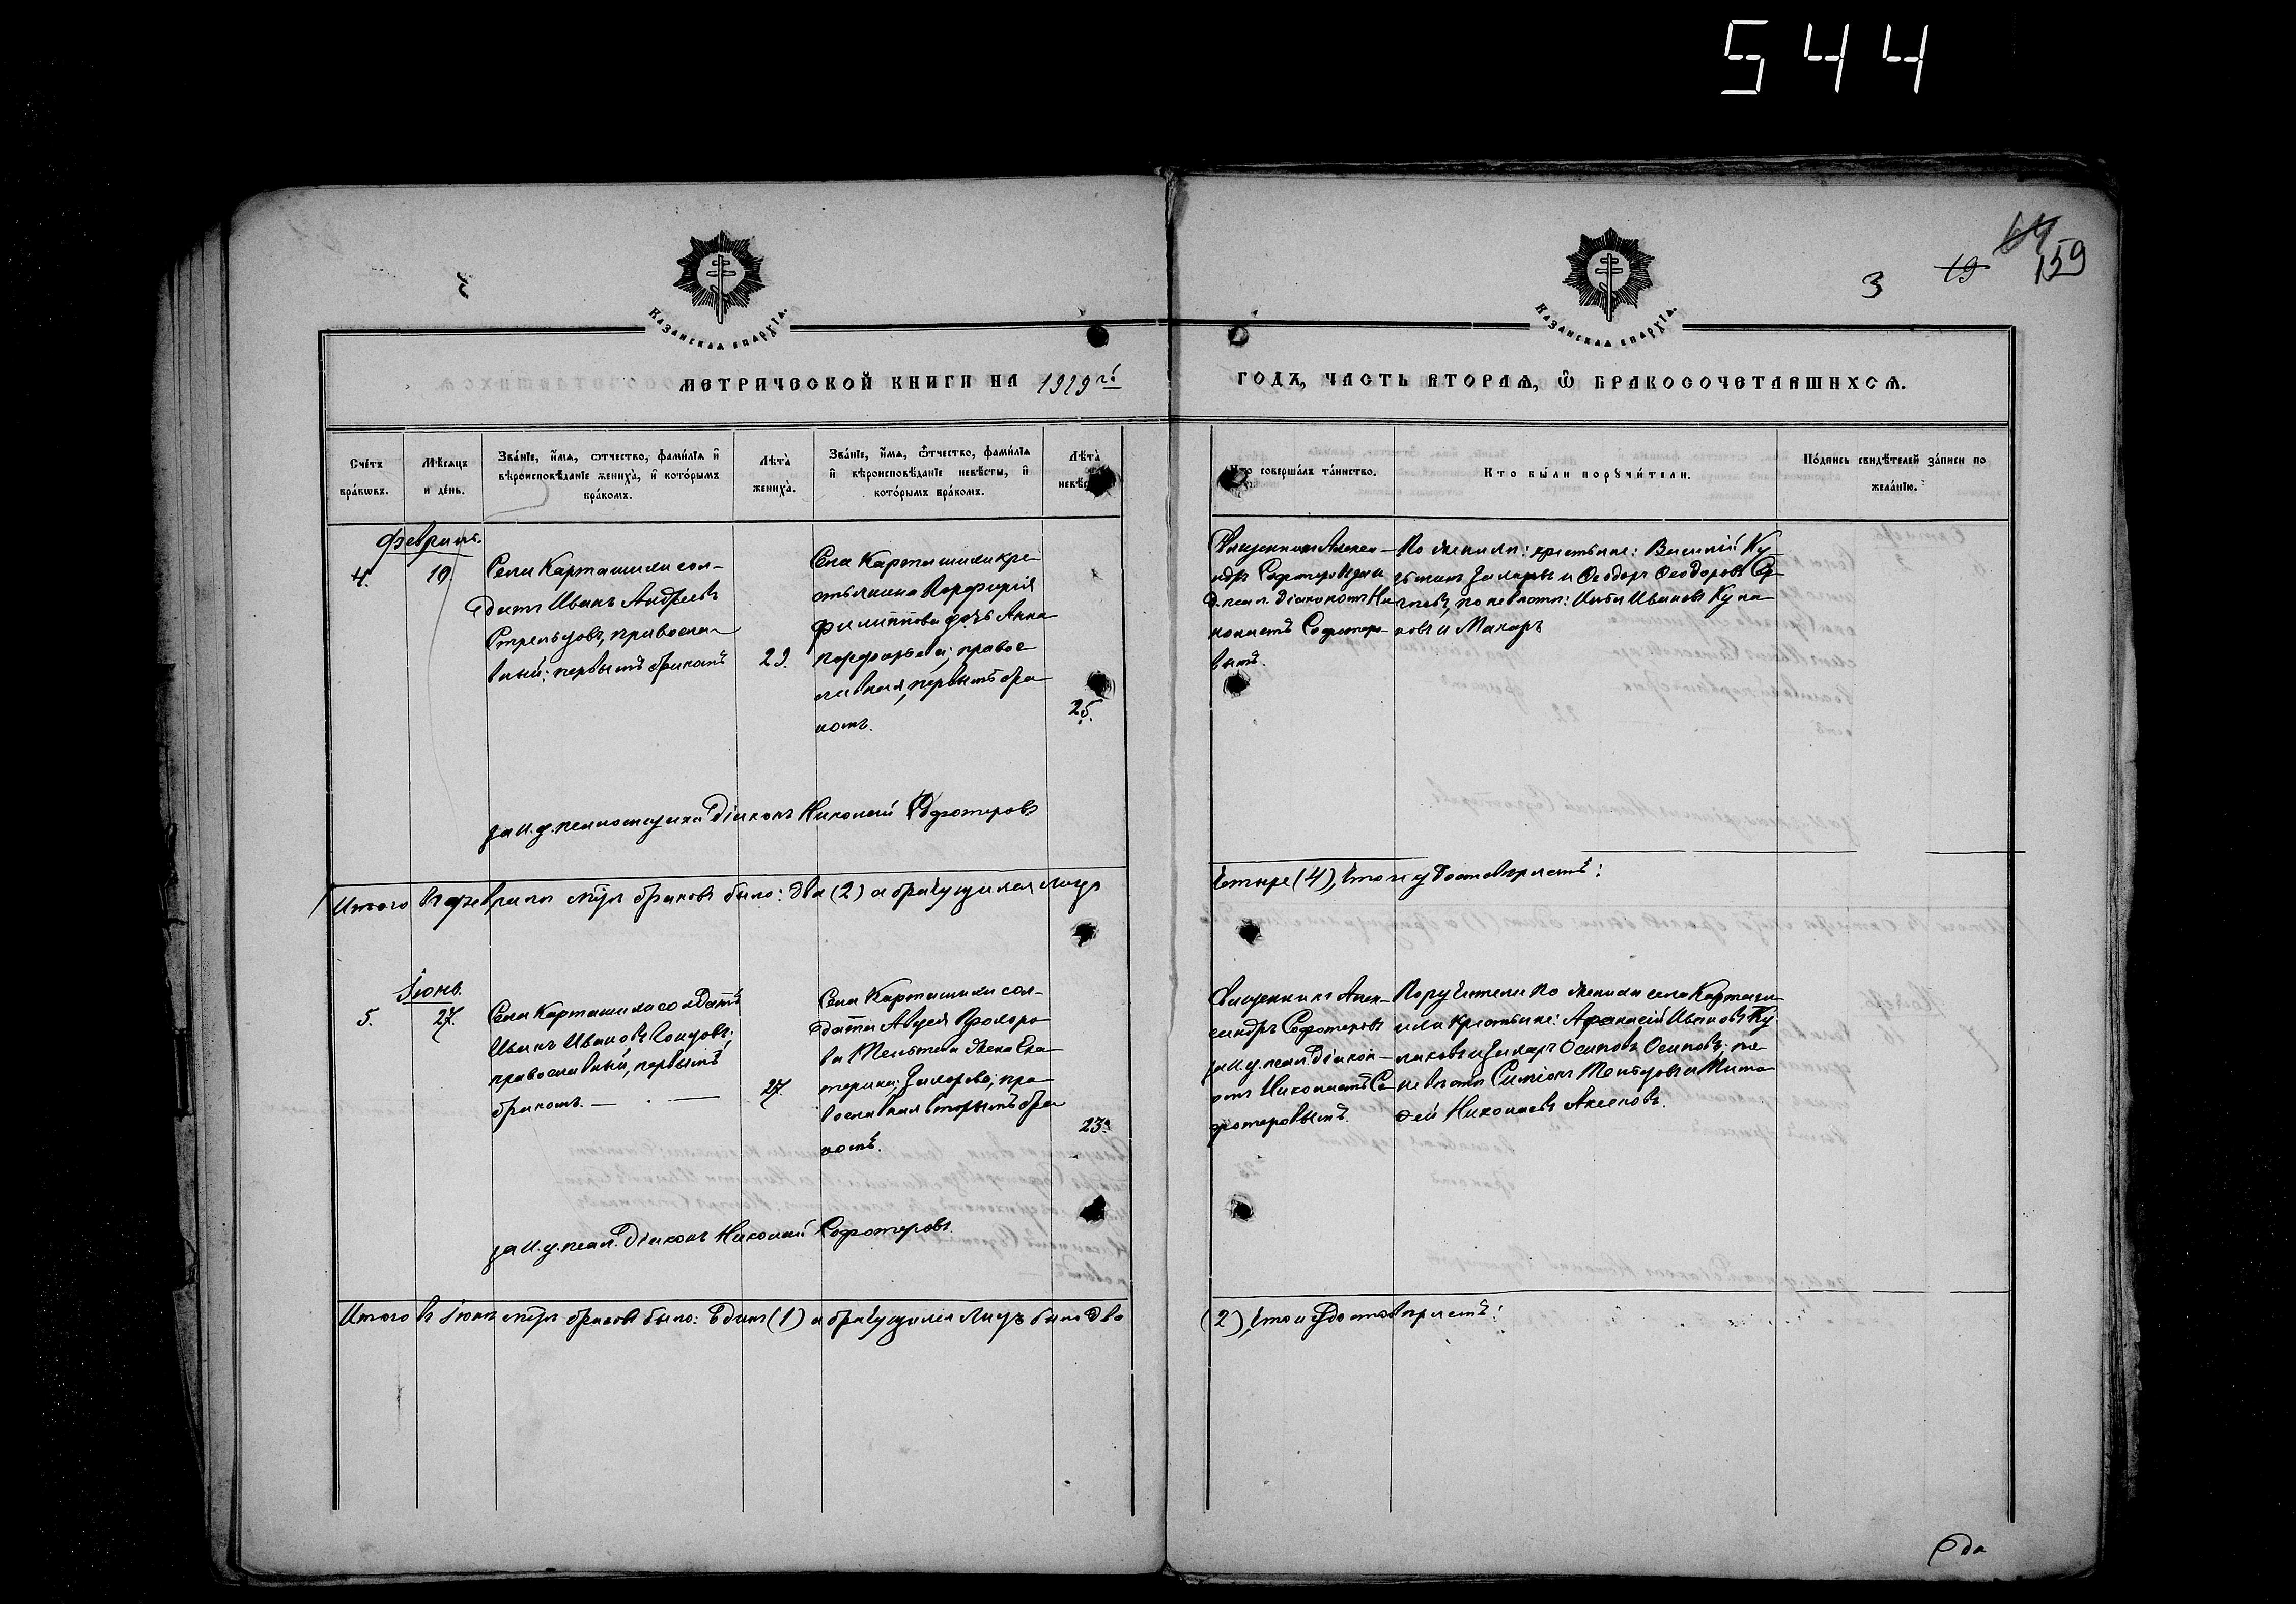 544
64
159
19
3
Казанская епархїа.
Казанская епархїа.
МЕТРИЧЕСКОЙ КНИГИ НА 1919 г.
ГОДЪ, ЧАСТЬ ВТОРАѦ, Ѽ БРАКОСОЧЕТАВШИХСѦ.
Счетъ браковъ.
Мѣсяцъ и день.
Званїе, имѧ, ѿчество, фамилїѧ и
вѣроисповѣданїе жениха, и которымъ
бракомъ.
Лѣта жениха.
Званїе, имѧ, ѿчество, фамилїѧ
и вѣроисповѣданїе невѣсты, и
которымъ бракомъ.
Лѣта
Кто совершалъ таинство.
Кто были поручители.
Подпись свидѣтелей записи по
желанїю.
Февраль.
4.
10
Села Карташихи сол-
датъ Иванъ Андреевъ
Стрельцовъ, правосла-
вный; первымъ бракомъ
29.
Села Карташихи кре-
стьянина Порфирія
Филиппова дочь Анна
Порфирьева; правос-
лавная, первымъ бра-
комъ.
25.
Священникъ Алекса-
ндръ Софотеровъ за и.
д. псал. діакономъ Ни-
колаемъ Софотеро-
вымъ.
По женихѣ: крестьяне: Василій Ку-
и Ѳеодоръ Ѳеодоровъ
по невѣстѣ: Иванъ Ку
новъ и Макаръ
за и. д. псаломщика Діаконъ Николай Софотеровъ
Итого въ февралѣ мѣс. браковъ было: два (2) а брачущихся лицъ
четыре (4), что и удостовѣряемъ:
Іюнь.
5.
27.
Села Карташихи солдатъ
Иванъ Ивановъ
православный, первымъ
бракомъ.
27.
Села Карташихи сол-
дата Авдея Прохоро-
ва жена Ека-
терина; пра-
вославная вторымъ бра
комъ.
23.
Священникъ Алек-
сандръ Софотеровъ
за и. д. псал. діакон-
омъ Николаемъ Со-
фотеровымъ.
Поручители по женихѣ села Карташи-
хи крестьяне: Афанасій Ивановъ Ку
ликовъ и Осиповъ Осиповъ; по
невѣстѣ Симіонъ и Тимо-
фей Николаевъ Аксеновъ.
за и. д. псал. Діаконъ Николай Софотеровъ.
Итого въ Іюнѣ мѣс. браковъ было: Одинъ (1) а брачущихся лицъ было два
(2), что и удостовѣряемъ: